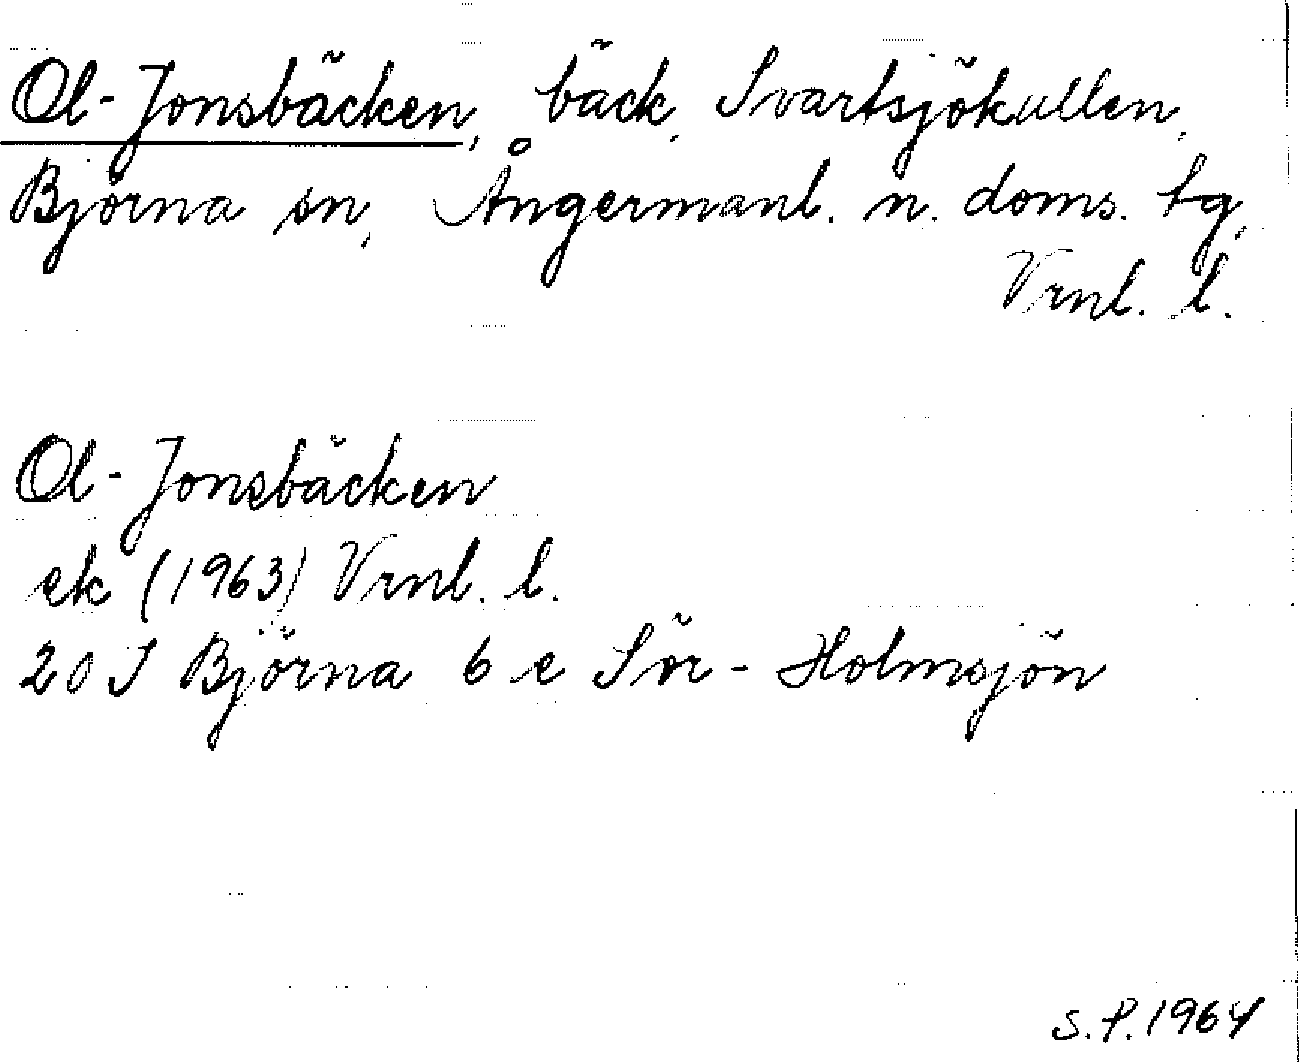 Ol-Jonsbäcken, bäck, Svartsjökullen,
Björna sn, Ångermanl. n. doms. tg,
Vrnl. l.
Ol-Jonsbäcken
ek (1963) Vrnl. l.
20 J Björna 6 e Sör-Holmsjön
S.P. 1964